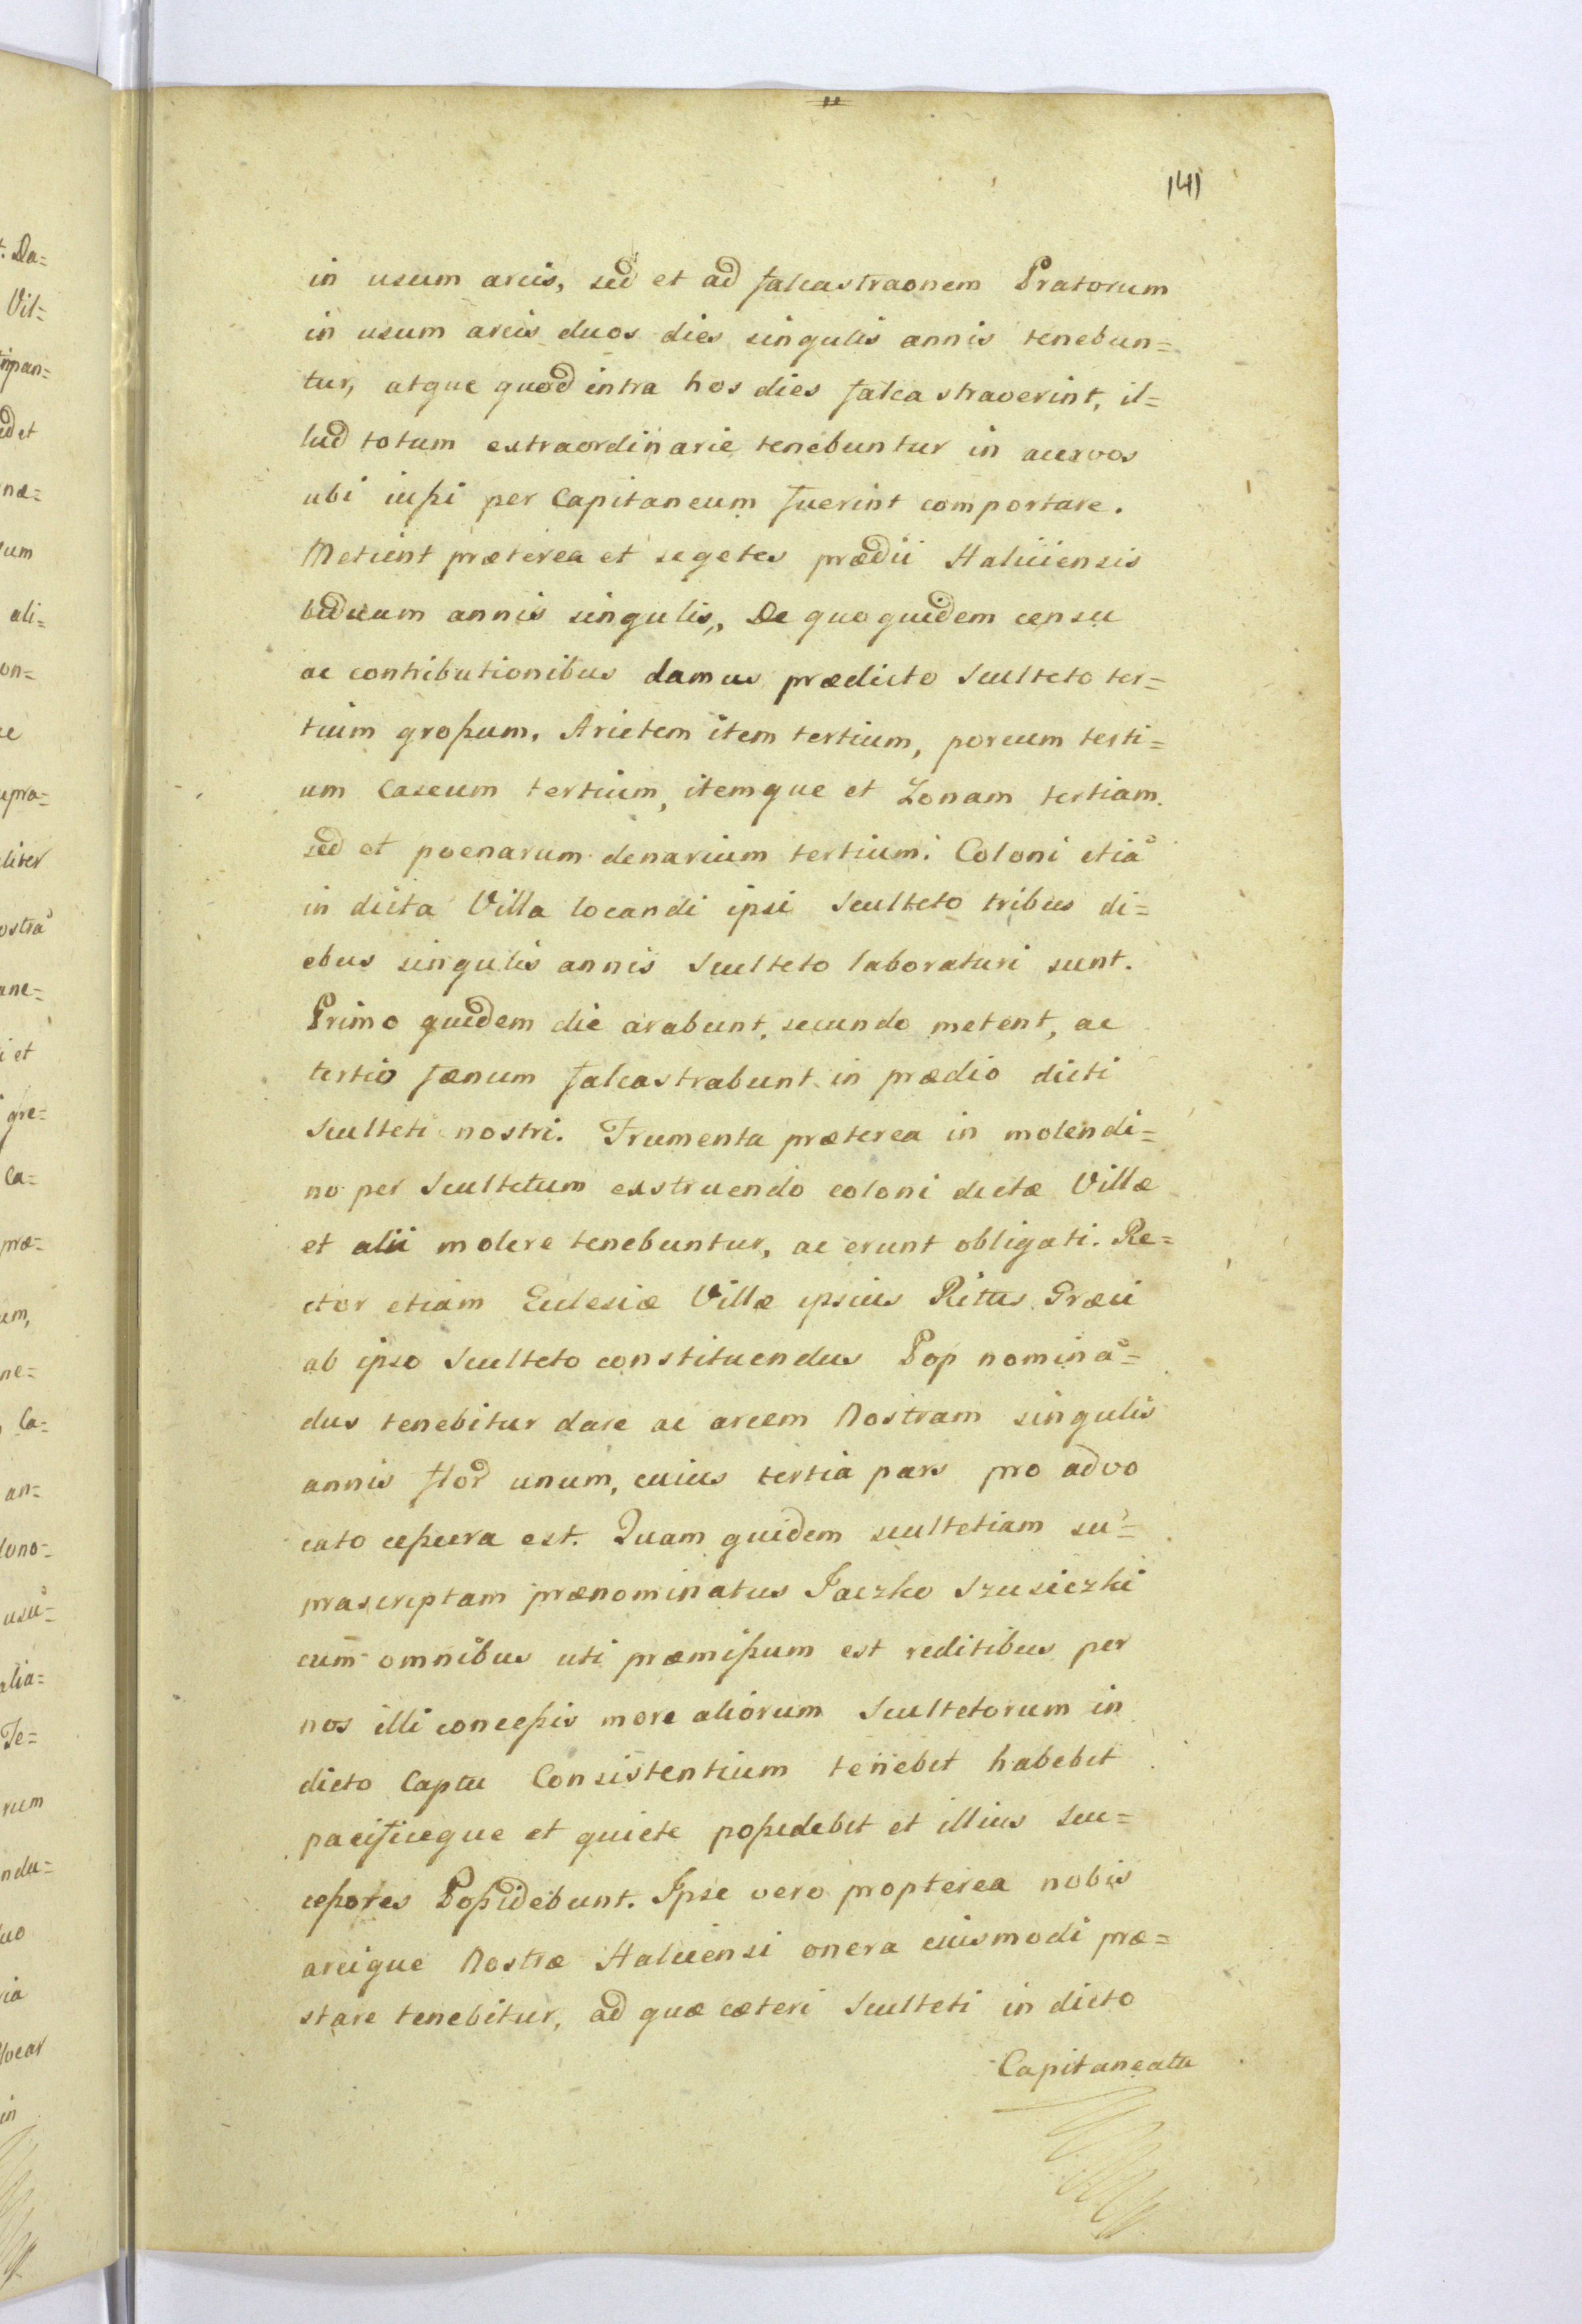 141
in usum arcis, sed et ad falcastraonem Pratorum
in usum arcis duos dies singulis annis tenebun=
tur, atque quod intra hos dies falcastraverint, il=
lud totum extraordinarie tenebuntur in acervos
ubi iußi per Capitaneum fuerint comportare.
Metient præterea et segetes prædii Haliciensis
biduum annis singulis, De quo quidem censu
ac contributionibus damus prædicto Sculteto ter=
tium großum, Arietem item tertium, porcum terti=
um Caseum tertium, itemque et Zonam tertiam.
sed et poenarum denarium tertium. Coloni etiã
in dicta Villa locandi ipsi Sculteto tribus di=
ebus singulis annis Sculteto laboraturi sunt.
Primo quidem die arabunt, secundo metent, ac
tertio fænum falcastrabunt in prædio dicti
Sculteti nostri. Frumenta præterea in molendi=
no per Scultetum exstruendo coloni dictæ Villæ
et alii molere tenebuntur, ac erunt obligati. Re=
ctor etiam Ecclesiæ Villæ ipsius Ritus Græci
ab ipso Sculteto constituendus Pop nominã=
dus tenebitur dare ac arcem Nostram singulis
annis flor unum, cuius tertia pars pro advo
cato ceßura est. Quam quidem scultetiam su=
prascriptam prænominatus Jaczko Szusiczki
cum omnibus uti præmißum est reditibus per
nos illi conceßis more aliorum Scultetorum in
dicto Captu Consistentium tenebit habebit
pacificeque et quiete poßidebit et illius Suc=
ceßores Poßidebunt. Ipse vero propterea nobis
arcique Nostræ Haliciensi onera cuismodi præ=
stare tenebitur, ad quæ cæteri Sculteti in dicto
Capitaneatu